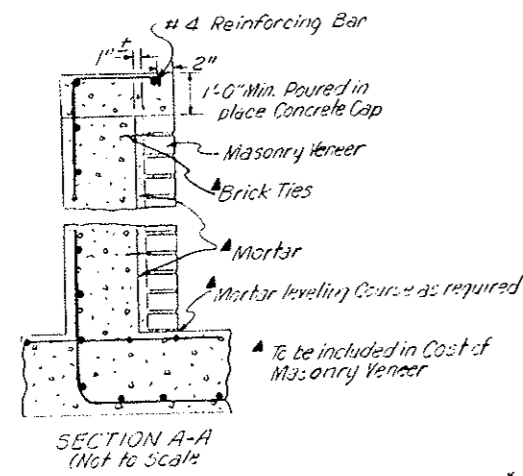 #4 Reinforcing Bar
1"± 2"
1'-0" Min. Poured in
place Concrete Cap
Masonry Veneer
▲Brick Ties
▲Mortar
▲Mortar leveling Course as required
▲ To be included in Cost of
Masonry Veneer
SECTION A-A
(Not to Scale